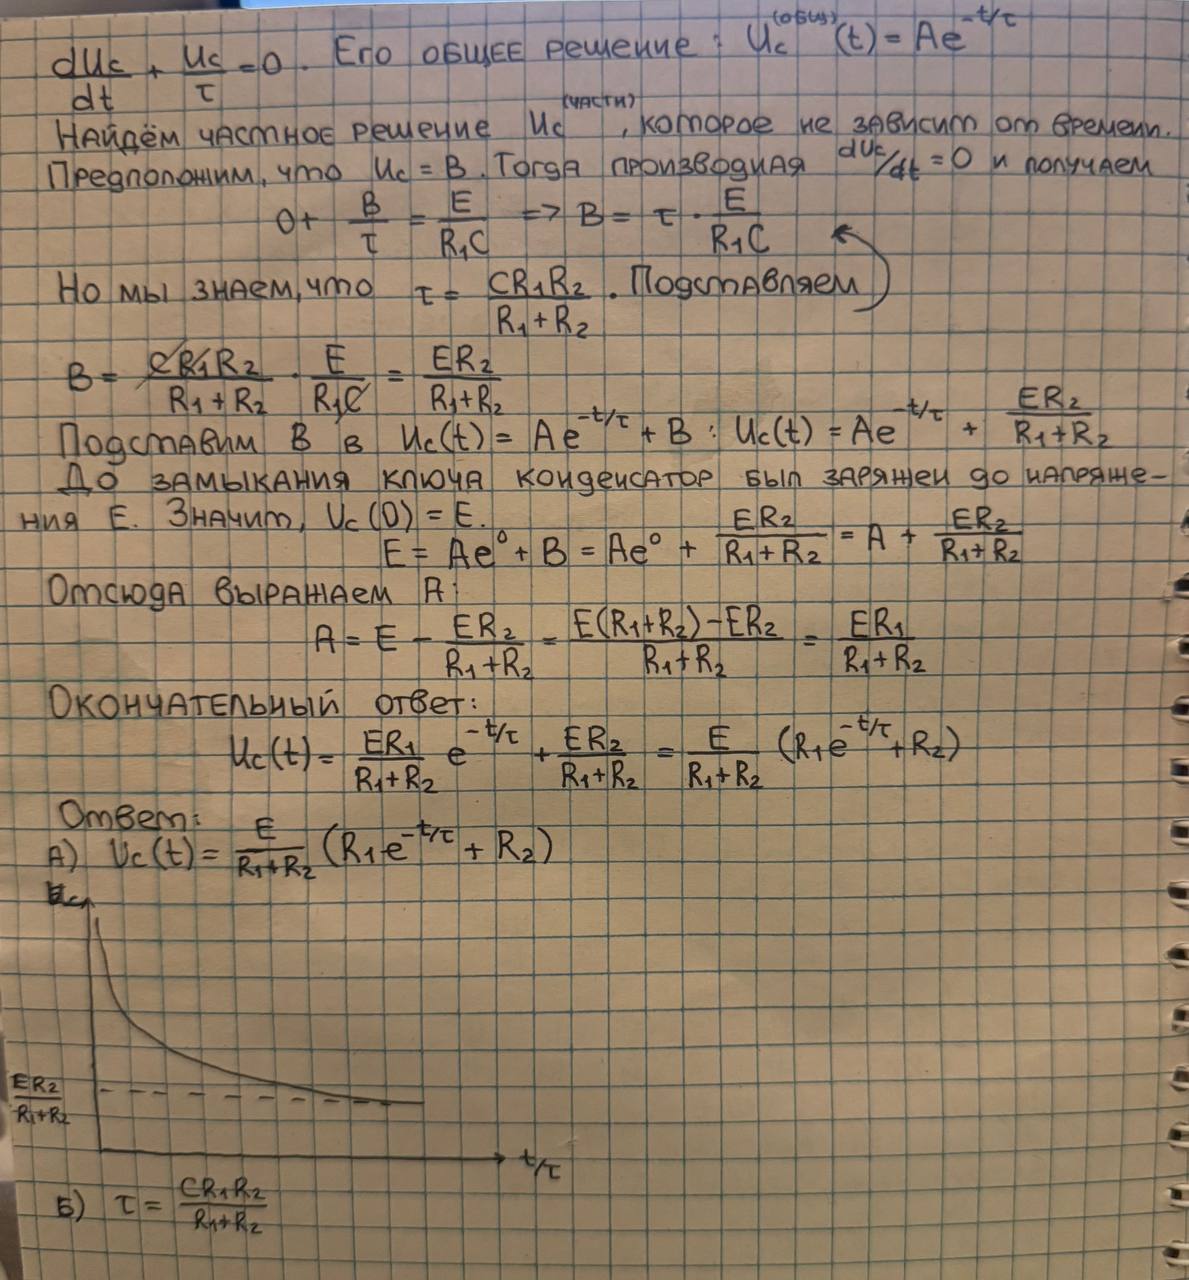 dUc/dt + Uc/τ = 0. Его общее решение: Uc^(общ)(t) = Ae^(-t/τ)
Найдём частное решение Uc^(частн), которое не зависит от времени.
Предположим, что Uc = B. Тогда производная dUc/dt = 0 и получаем
0 + B/τ = E/(R₁C) => B = τ · E/(R₁C)
Но мы знаем, что τ = CR₁R₂/(R₁+R₂). Подставляем
B = CR₁R₂/(R₁+R₂) · E/(R₁C) = ER₂/(R₁+R₂)
Подставим B в Uc(t) = Ae^(-t/τ) + B : Uc(t) = Ae^(-t/τ) + ER₂/(R₁+R₂)
До замыкания ключа конденсатор был заряжен до напряже-
ния E. Значит, Uc(0) = E.
E = Ae⁰ + B = Ae⁰ + ER₂/(R₁+R₂) = A + ER₂/(R₁+R₂)
Отсюда выражаем A:
A = E - ER₂/(R₁+R₂) = (E(R₁+R₂) - ER₂)/(R₁+R₂) = ER₁/(R₁+R₂)
Окончательный ответ:
Uc(t) = ER₁/(R₁+R₂) e^(-t/τ) + ER₂/(R₁+R₂) = E/(R₁+R₂) (R₁e^(-t/τ) + R₂)
Ответ:
А) Uc(t) = E/(R₁+R₂) (R₁e^(-t/τ) + R₂)
Uc
ER₂/(R₁+R₂)
t/τ
Б) τ = CR₁R₂/(R₁+R₂)